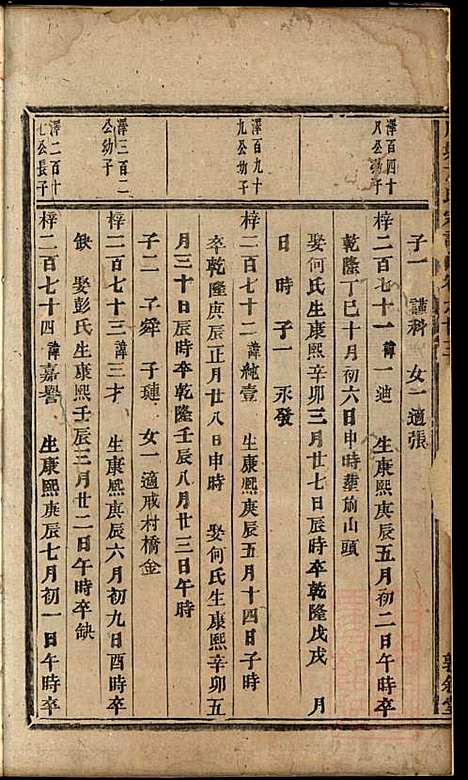 子一 謹科 女一適張
澤百四十
八公幼子
梓二百七十一 諱一廸 生康熙庚辰五月初二日午時卒
乾隆丁巳十月初六日申時葬前山頭
娶何氏生康熙辛卯三月廿七日辰時卒乾隆戊戌 月
日 時 子一 永發
澤百九十
九公幼子
梓二百七十二 諱純壹 生康熙庚辰五月十四日子時
卒乾隆庚辰正月廿八日申時 娶何氏生康熙辛卯五
月三十日辰時卒乾隆壬辰八月廿三日午時
子二 子舜 子璉 女一適戒村橋金
澤二百二
公幼子
梓二百七十三 諱三才 生康熙庚辰六月初九日酉時卒
缺 娶彭氏生康熙壬辰三月廿二日午時卒缺
澤二百十
七公長子
梓二百七十四 諱嘉譽 生康熙庚辰七月初一日午時卒